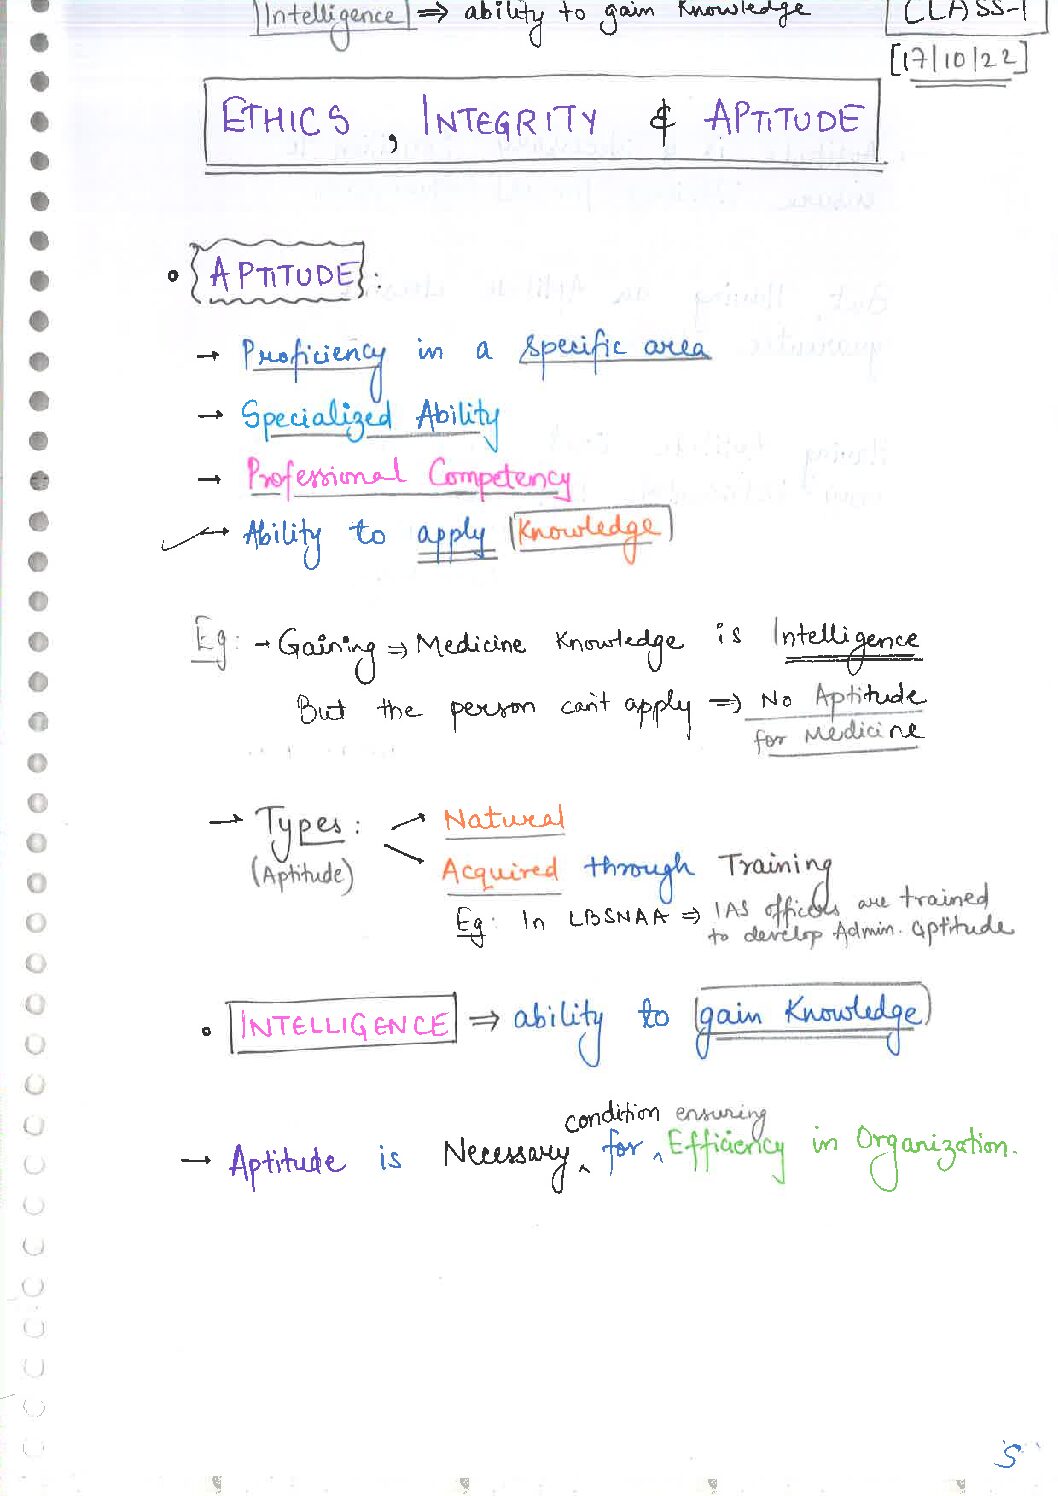 Intelligence ⇒ ability to gain Knowledge
CLASS-1
[17/10/22]
ETHICS, INTEGRITY & APTITUDE
• APTITUDE:
→ Proficiency in a specific area
→ Specialized Ability
→ Professional Competency
→ Ability to apply Knowledge
Eg: → Gaining ⇒ Medicine Knowledge is Intelligence
But the person can't apply ⇒ No Aptitude
for Medicine
→ Types: Natural
(Aptitude) Acquired through Training
Eg: In LBSNAA ⇒ IAS officers are trained
to develop Admin. aptitude
• INTELLIGENCE ⇒ ability to gain Knowledge
→ Aptitude is Necessary condition for ensuring Efficiency in Organization.
S